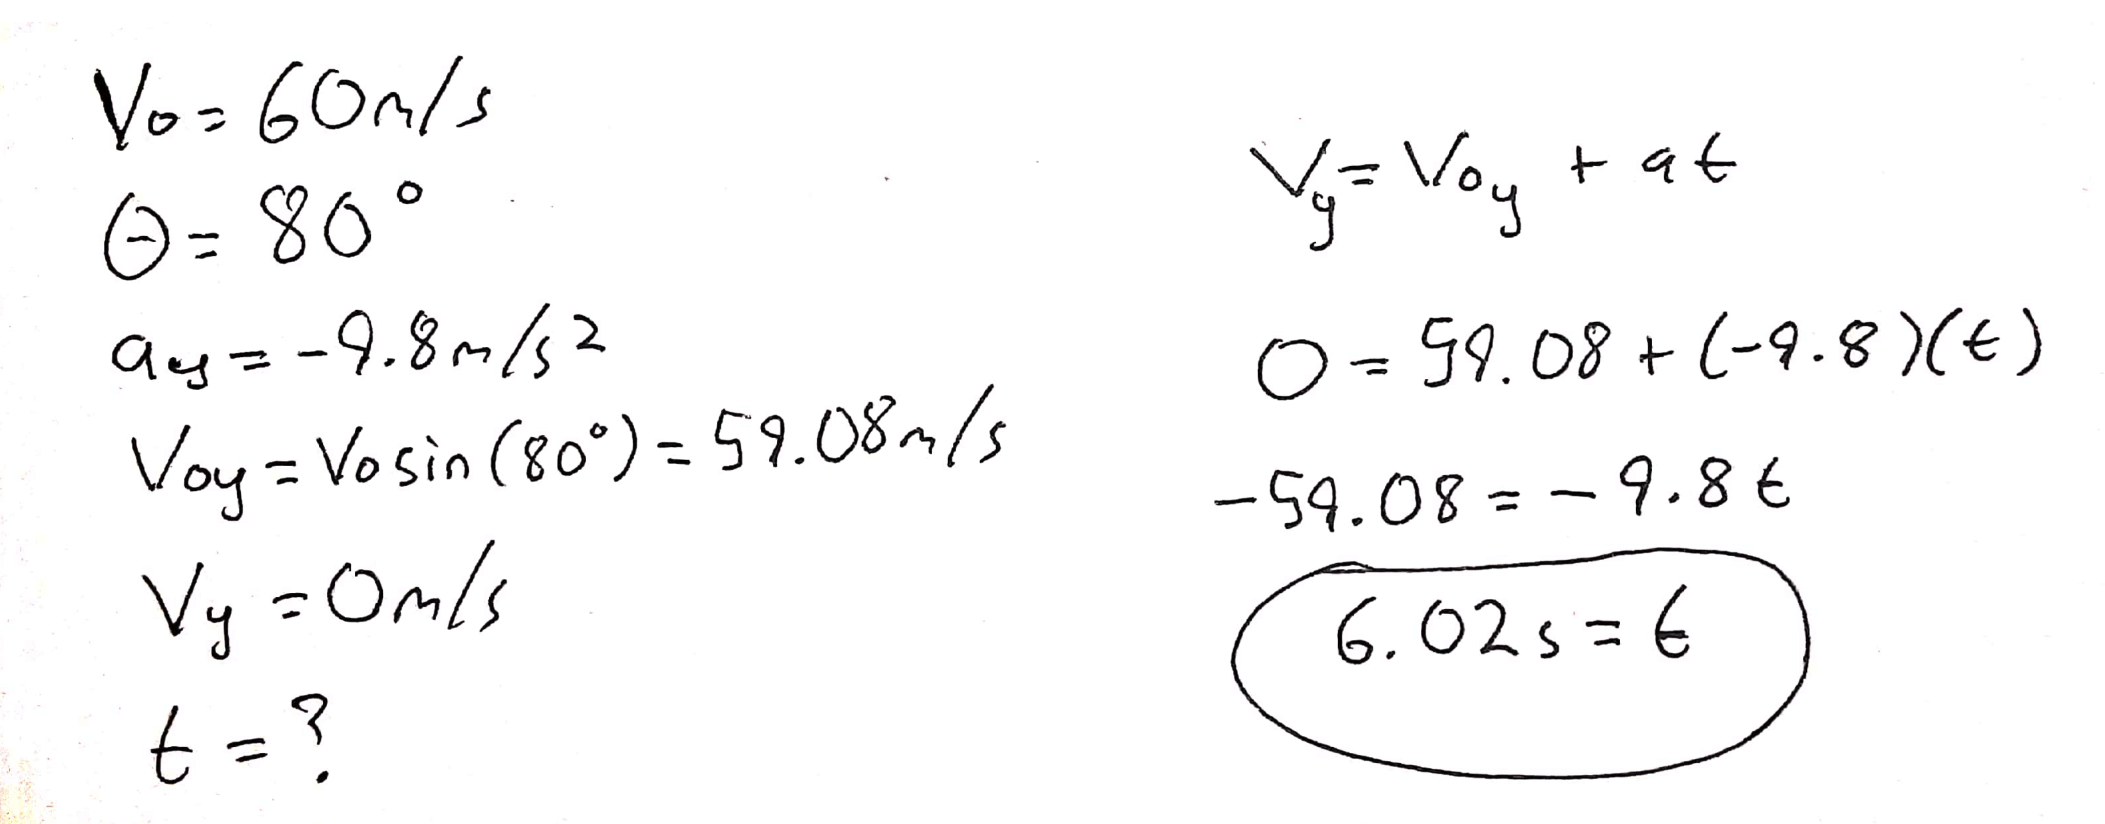 Vo = 60m/s
θ = 80°
ay = -9.8m/s2
Voy = Vosin(80°) = 59.08m/s
Vy = 0m/s
t = ?
Vy = Voy + at
0 = 59.08 + (-9.8)(t)
-59.08 = -9.8t
6.02s = t